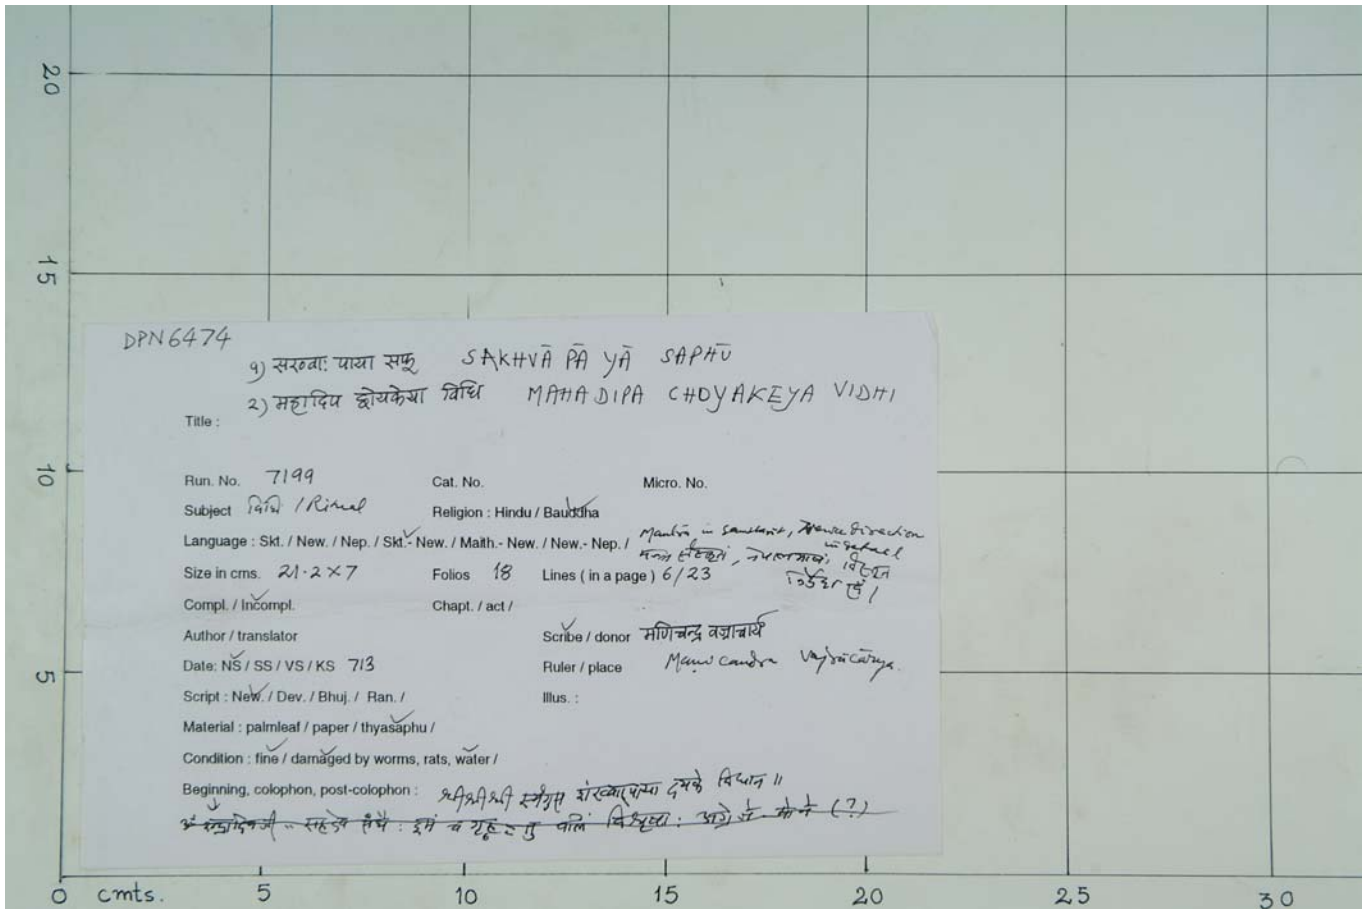 20
15
10
5
0 cmts. 5 10 15 20 25 30
DPN6474
१) सख्वाः पाया सफू SAKHVĀ PĀ YĀ SAPHŪ
२) महादिप छोयकेया विधि MAHADIPA CHOYAKEYA VIDHI
Title :
Run. No. 7199 Cat. No. Micro. No.
Subject विधि / Ritual Religion : Hindu / Bauddha
Language : Skt. / New. / Nep. / Skt.- New. / Maith.- New. / New.- Nep. / Mantra in sanskrit,
Size in cms. 21.2 × 7 Folios 18 Lines ( in a page ) 6/23
Compl. / Incompl. Chapt. / act /
Author / translator Scribe / donor मणिचन्द्र वज्राचार्य
Date: NS / SS / VS / KS 713 Ruler / place Manicandra Vajrācārya.
Script : New. / Dev. / Bhuj. / Ran. / Illus. :
Material : palmleaf / paper / thyasaphu /
Condition : fine / damaged by worms, rats, water /
Beginning, colophon, post-colophon : श्रीश्रीश्री दयके विधान ॥